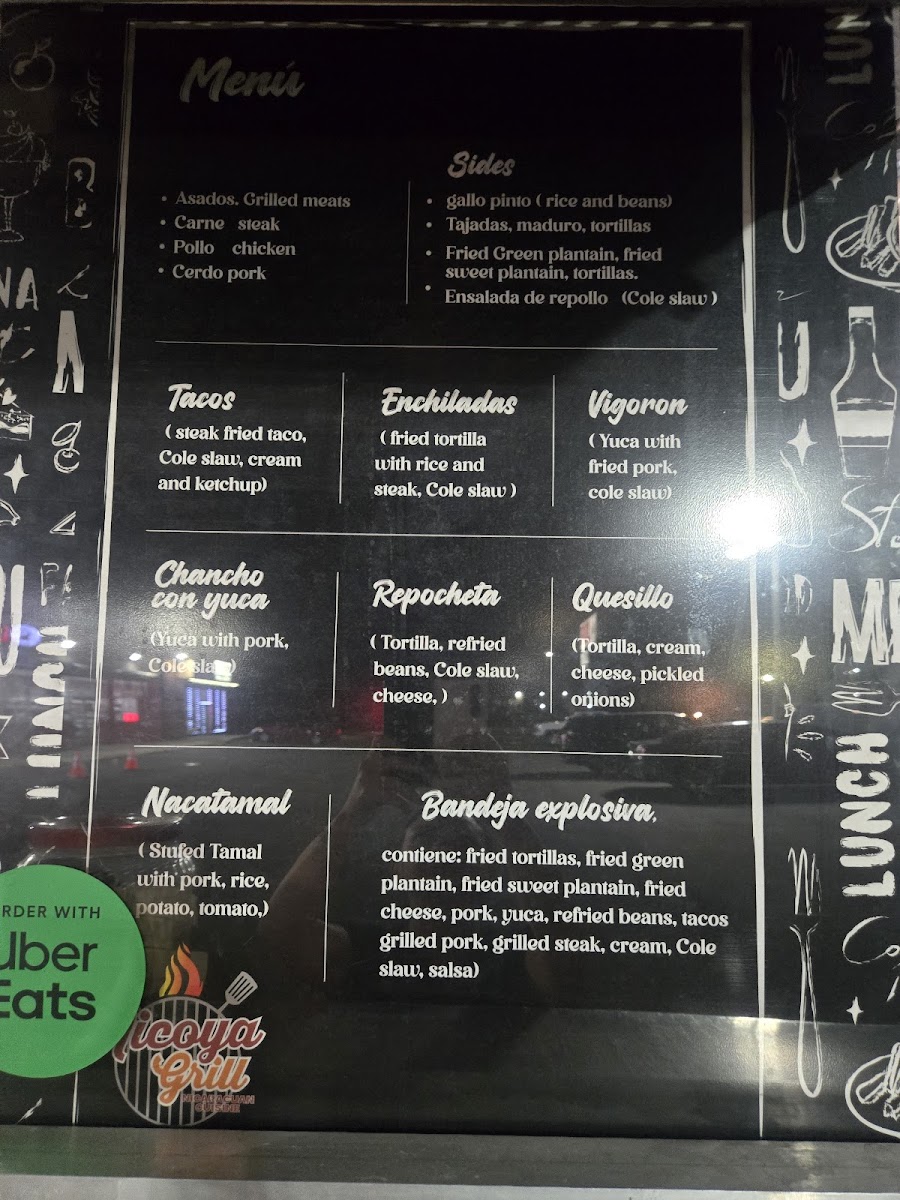 Menú
• Asados. Grilled meats
• Carne steak
• Pollo chicken
• Cerdo pork
Sides
• gallo pinto ( rice and beans)
• Tajadas, maduro, tortillas
• Fried Green plantain, fried
sweet plantain, tortillas.
• Ensalada de repollo (Cole slaw )
Tacos
( steak fried taco,
Cole slaw, cream
and ketchup)
Enchiladas
( fried tortilla
with rice and
steak, Cole slaw )
Vigoron
( Yuca with
fried pork,
cole slaw)
Chancho
con yuca
(Yuca with pork,
Cole slaw)
Repocheta
( Tortilla, refried
beans, Cole slaw,
cheese, )
Quesillo
(Tortilla, cream,
cheese, pickled
onions)
Nacatamal
( Stufed Tamal
with pork, rice,
potato, tomato,)
Bandeja explosiva.
contiene: fried tortillas, fried green
plantain, fried sweet plantain, fried
cheese, pork, yuca, refried beans, tacos
grilled pork, grilled steak, cream, Cole
slaw, salsa)
RDER WITH
Uber
Eats
icoya
Grill
NICARAGUAN
CUISINE
LUN
LUNCH